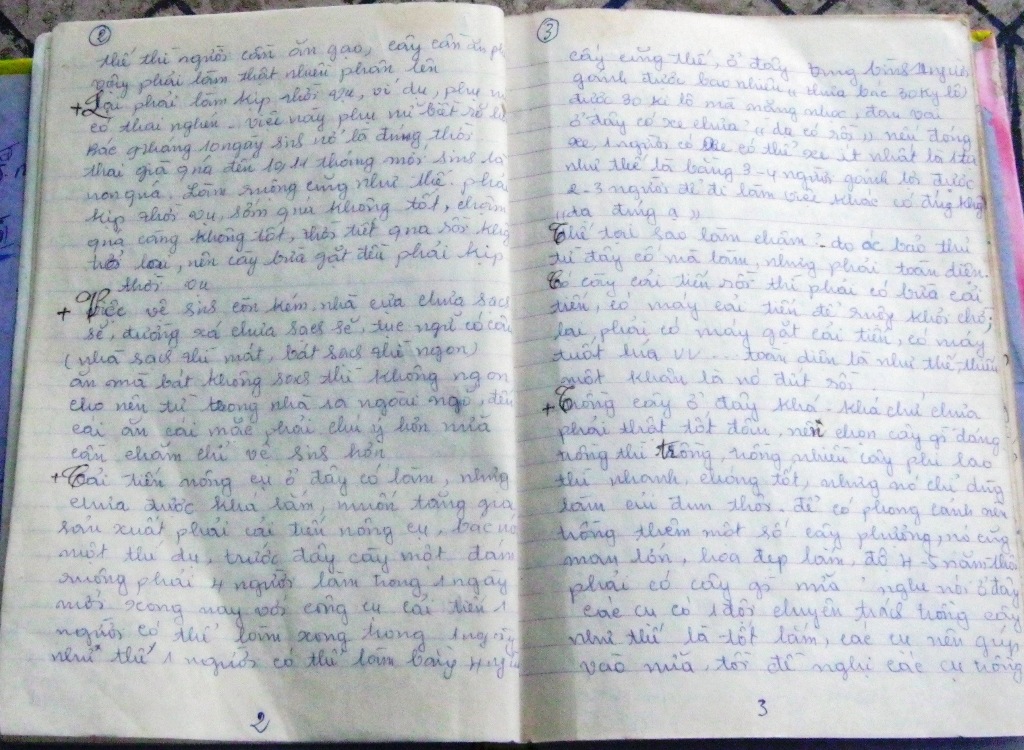 ②
thế thì người cần ăn gạo, cây cần ăn ph
vậy phải làm thật nhiều phân lên
+ Lại phải làm kịp thời vụ, ví dụ, phụ n
có thai nghén - việc này phụ nữ biết rõ
9 tháng 10 ngày sinh nở là đúng, thời
thai già quá đến 10, 11 tháng mới sinh là
non quá. Làm ruộng cũng như thế. phải
kịp thời vụ, sớm quá không tốt, chậm
quá càng không tốt, thời tiết qua rồi không
trở lại, nên cày bừa gặt đều phải kịp
thời vụ
+ Việc vệ sinh còn kém, nhà cửa chưa sạch
sẽ, đường xá chưa sạch sẽ, tục ngữ có câu
(nhà sạch thì mát, bát sạch thì ngon)
ăn mà bát không sạch thì không ngon
cho nên từ trong nhà ra ngoài ngõ, đến
cái ăn cái mặc phải chú ý hơn nữa
cần chăm chỉ vệ sinh hơn
+ Cải tiến nông cụ ở đây có làm, nhưng
chưa được khá lắm, muốn tăng gia
sản xuất phải cải tiến nông cụ, bác nói
một thí dụ, trước đây cấy một đám
ruộng phải 4 người làm trong 1 ngày
mới xong nay với công cụ cải tiến 1
người có thể làm xong trong 1 ngày
như thế 1 người có thể làm bằng 4 ng
2
③
cấy cũng thế, ở đây trung bình 1 người
gánh được bao nhiêu "thưa bác 30 ky lô"
được 30 ki lô mà nặng nhọc, đau vai
ở đây có xe chưa? "dạ có rồi" nếu đóng
xe, 1 người có xe có thể xe ít nhất là 1 tạ
như thế là bằng 3-4 người gánh lời được
2-3 người để đi làm việc khác có đúng không
"dạ đúng ạ"
Thế tại sao làm chậm? do óc bảo thủ
từ đây cố mà làm, nhưng phải toàn diện.
Có cày cải tiến rồi thì phải có bừa cải
tiến, có máy cải tiến để khỏi chờ;
lại phải có máy gặt cải tiến, có máy
tuốt lúa vv... toàn diện là như thế, thiếu
một khâu là nó đứt rồi.
+ Trồng cây ở đây khá. khá chứ chưa
phải thật tốt đâu, nên chọn cây gì đáng
trồng thì trồng, trồng nhiều cây phi lao
thì nhanh, chóng tốt, nhưng nó chỉ dùng
làm củi đun thôi. để có phong cảnh nên
trồng thêm một số cây phượng, nó cũng
mau lớn, hoa đẹp lắm, độ 4-5 năm thôi
phải có cây gì nữa? nghe nói ở đây
các cụ có 1 đội chuyên trách trồng cây
như thế là tốt lắm, các cụ nên giúp
vào nữa, tôi đề nghị các cụ trồng
3